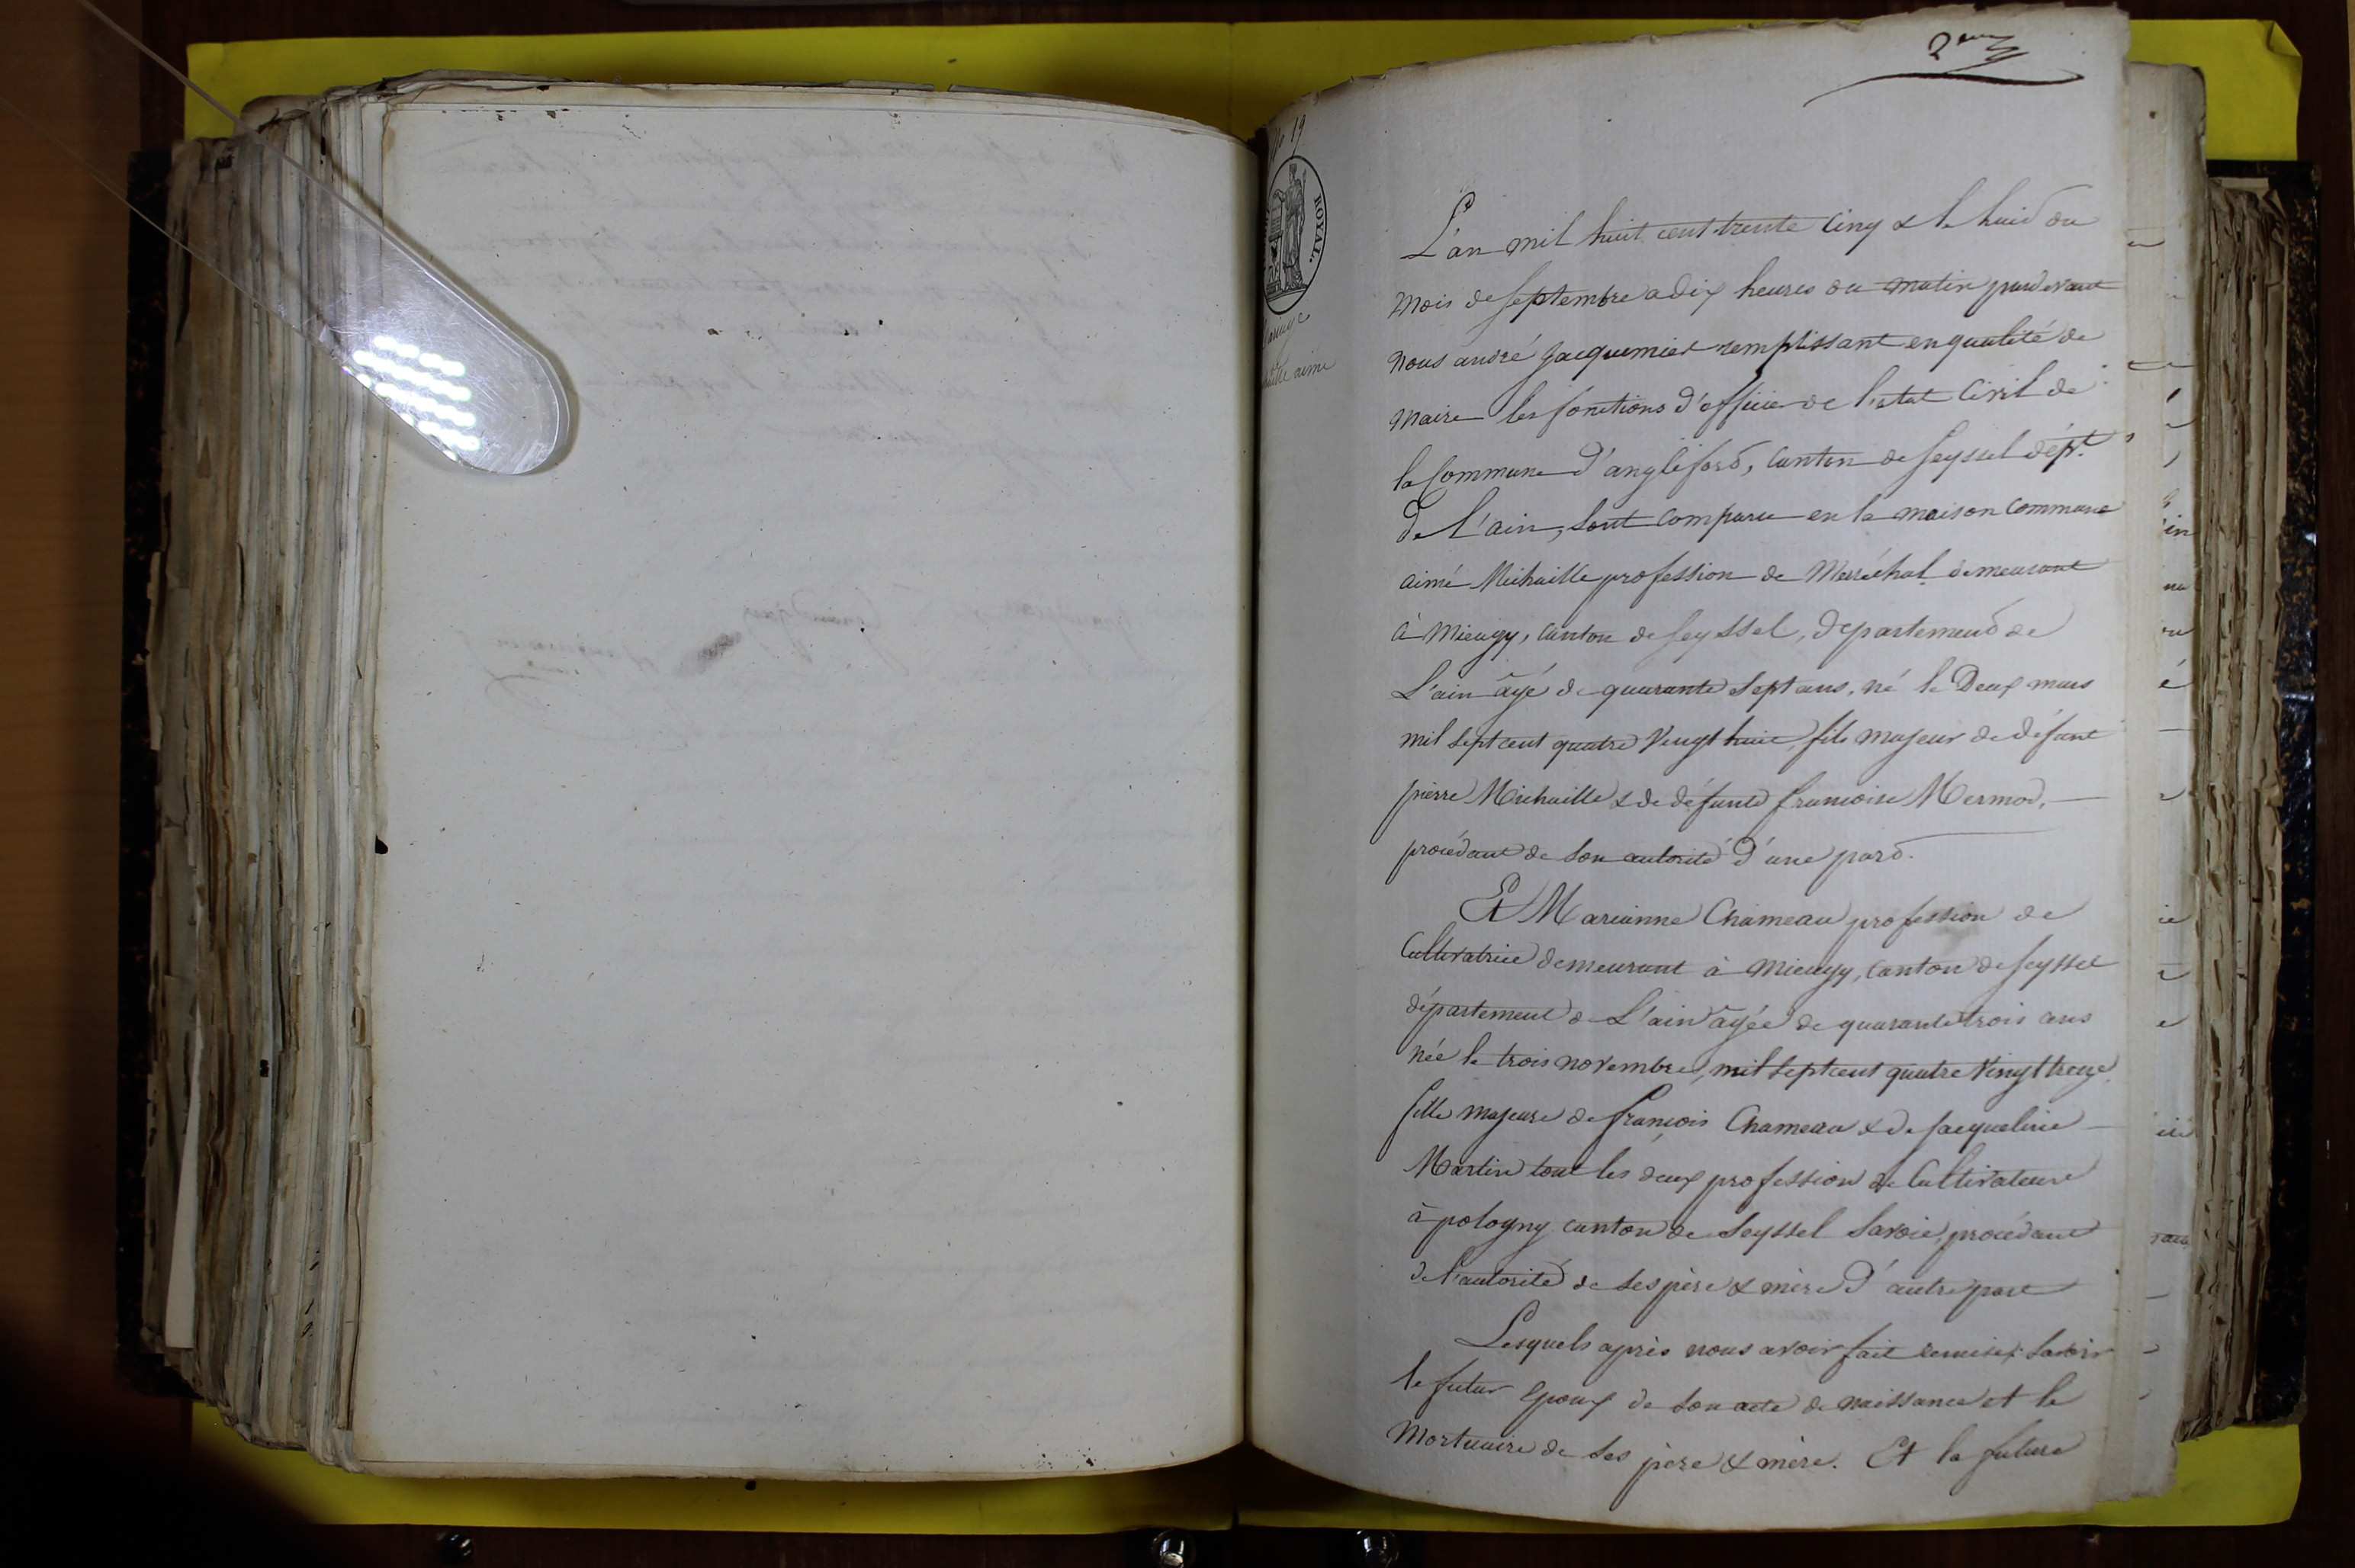 2eme
No 19
ROYAL.
aime
L'an mil huit cent trente cinq & le huit du
mois de septembre a dix heures du matin pardevant
nous andré Jacquemier remplissant en qualité de
maire les fonctions d'officier de l'etat civil de
la Commune d'anglefort, canton de seyssel dépt.
De L'ain, sont comparu en la maison commune
aimé Michaille profession de Maréchal demeurant
à Mieugy, canton de seyssel, departement de
L'ain âgé de quarante sept ans, né le Deux mars
mil sept cent quatre Vingt huit, fils majeur de défunt
pierre Michaille & de défunte francoise Mermod,
procédant de son autorité d'une part.
Et Marianne Chameau profession de
Cultivatrice demeurant à Mieugy, canton de seyssel
département de L'ain âgée de quarante trois ans
née le trois novembre, mil sept cent quatre Vingt treize
fille majeure de françois Chameau & de jacqueline
Martin tout les deux profession de Cultivateure
à pologny canton de Seyssel Savoie, procédant
de l'autorité de ses père & mère D'autre part
Lesquels après nous avoir fait remise, savoir
le futur Epoux de son acte de naissance et le
Mortuaire de ses père & mère. Et la future